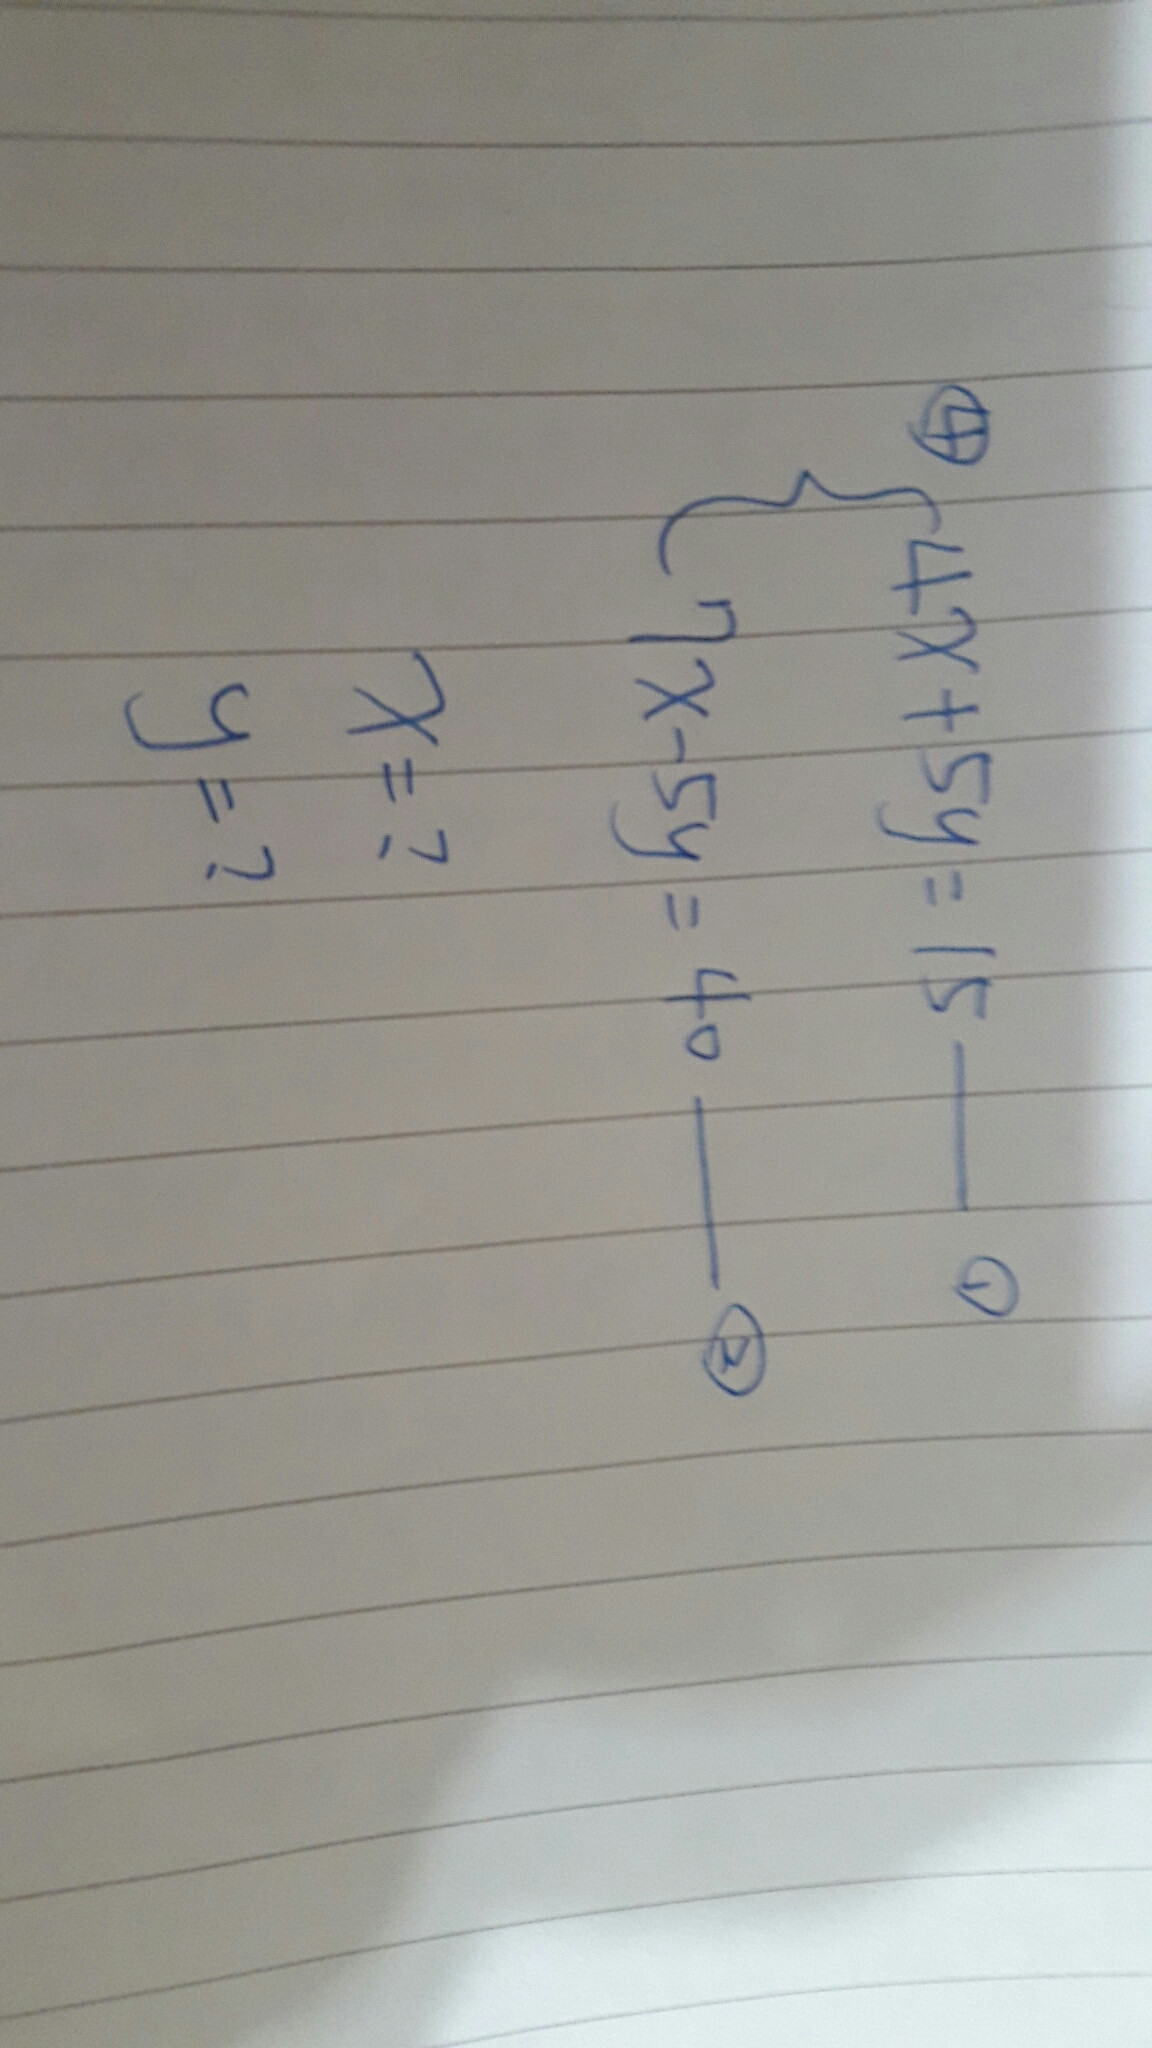 ④ { 4x + 5y = 15 —— ①
7x - 5y = 40 —— ②
x = ?
y = ?